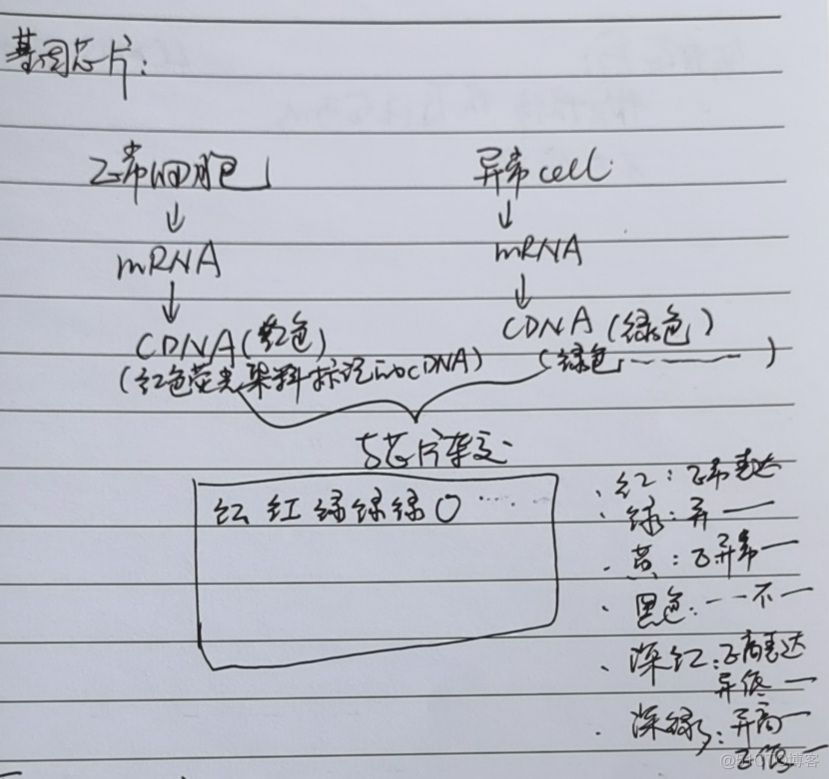 基因芯片:
正常细胞 异常cell
↓ ↓
mRNA mRNA
↓ ↓
CDNA(红色) CDNA(绿色)
(红色荧光染料标记的cDNA) (绿色——)
与芯片杂交
红 红 绿 绿 绿 O ……
· 红:正常表达
· 绿:异——
· 黄:正异常—
· 黑色:——不—
· 深红:正高表达
异低—
· 深绿:异高—
正低—